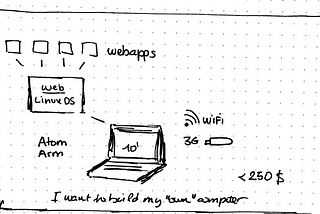 webapps
web
Linux OS
WiFi
3G
10'
Atom
Arm
< 250 $
I want to build my "own" computer